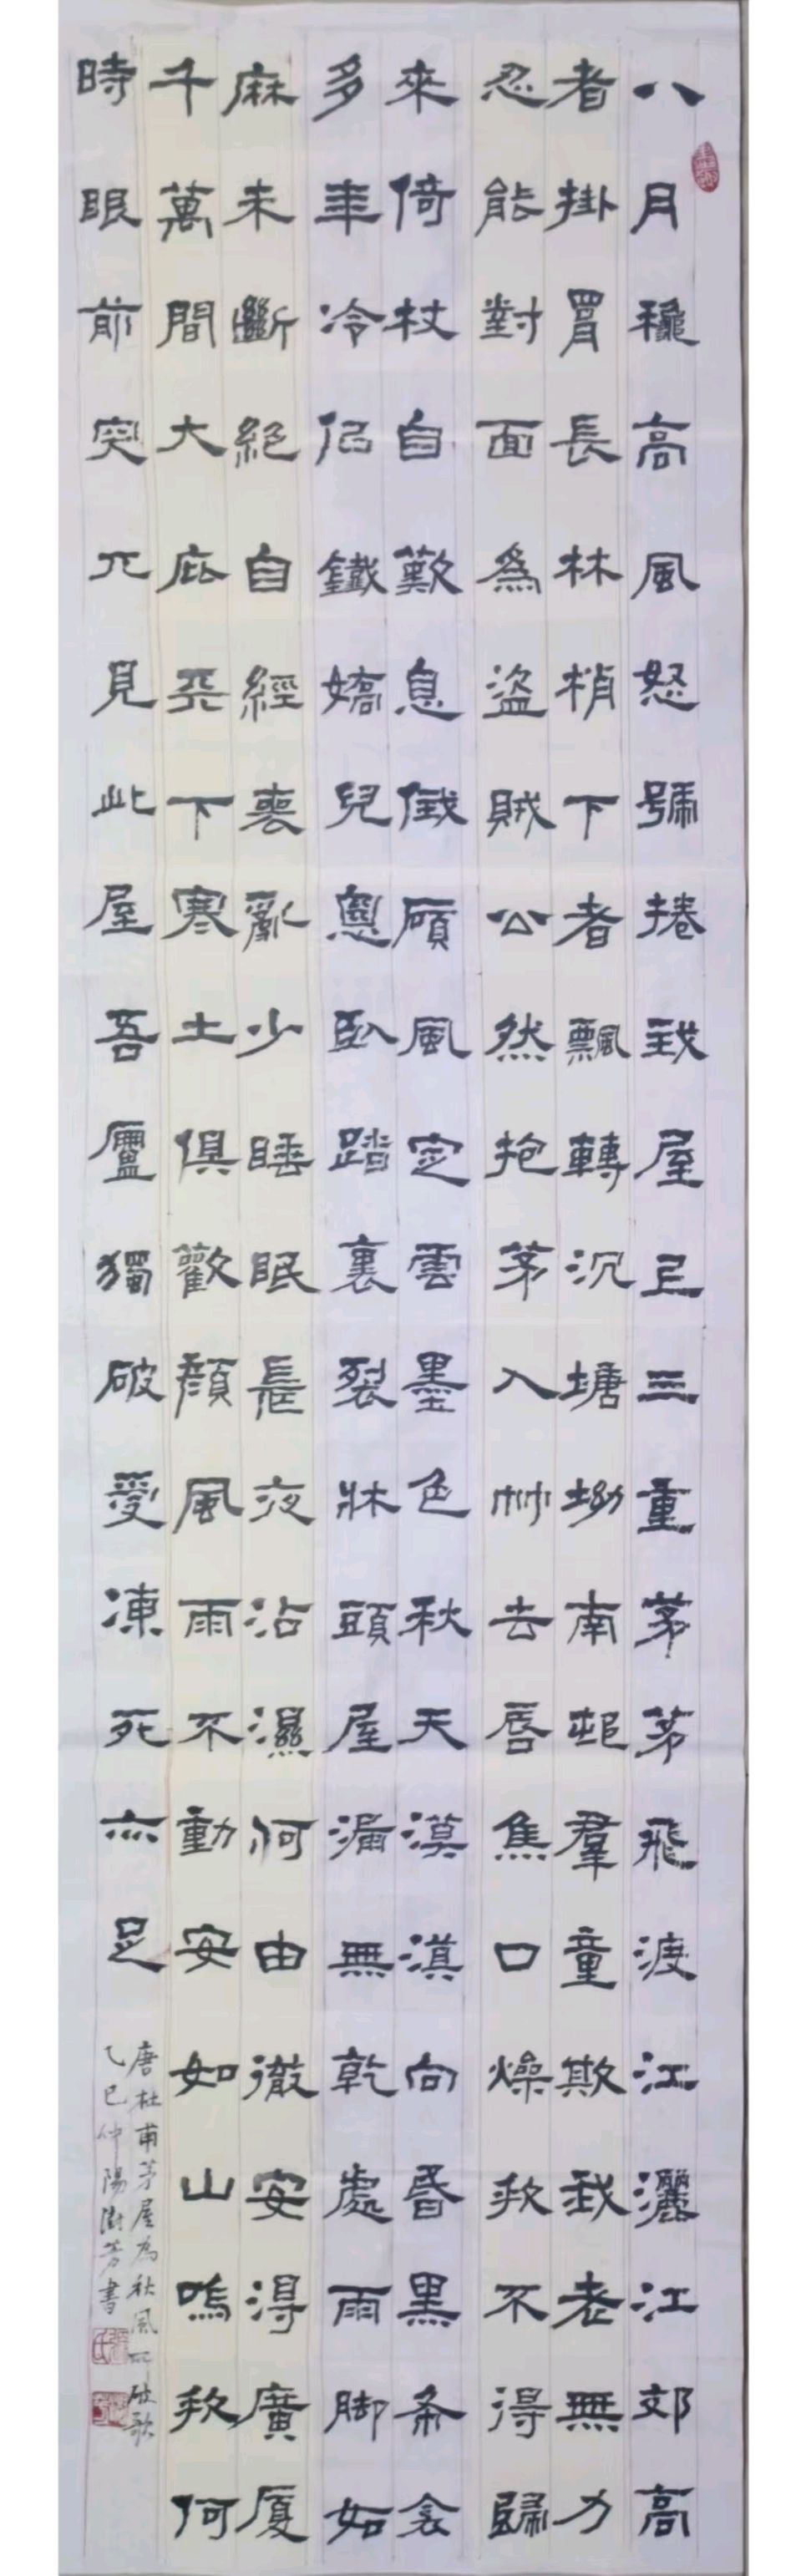 八月穐高風怒號捲我屋上三重茅茅飛渡江灑江郊高
者掛罥長林梢下者飄轉沉塘坳南邨羣童欺我老無力
忍能對面為盜賊公然抱茅入竹去唇焦口燥呼不得歸
來倚杖自歎息俄頃風定雲墨色秋天漠漠向昏黑布衾
多年冷似鐵嬌兒惡臥踏裏裂牀頭屋漏無乾處雨脚如
麻未斷絕自經喪亂少睡眠長夜沾濕何由徹安得廣厦
千萬間大庇天下寒士俱歡顏風雨不動安如山嗚呼何
時眼前突兀見此屋吾廬獨破受凍死亦足
唐杜甫茅屋為秋風所破歌
乙巳仲陽澍芳書